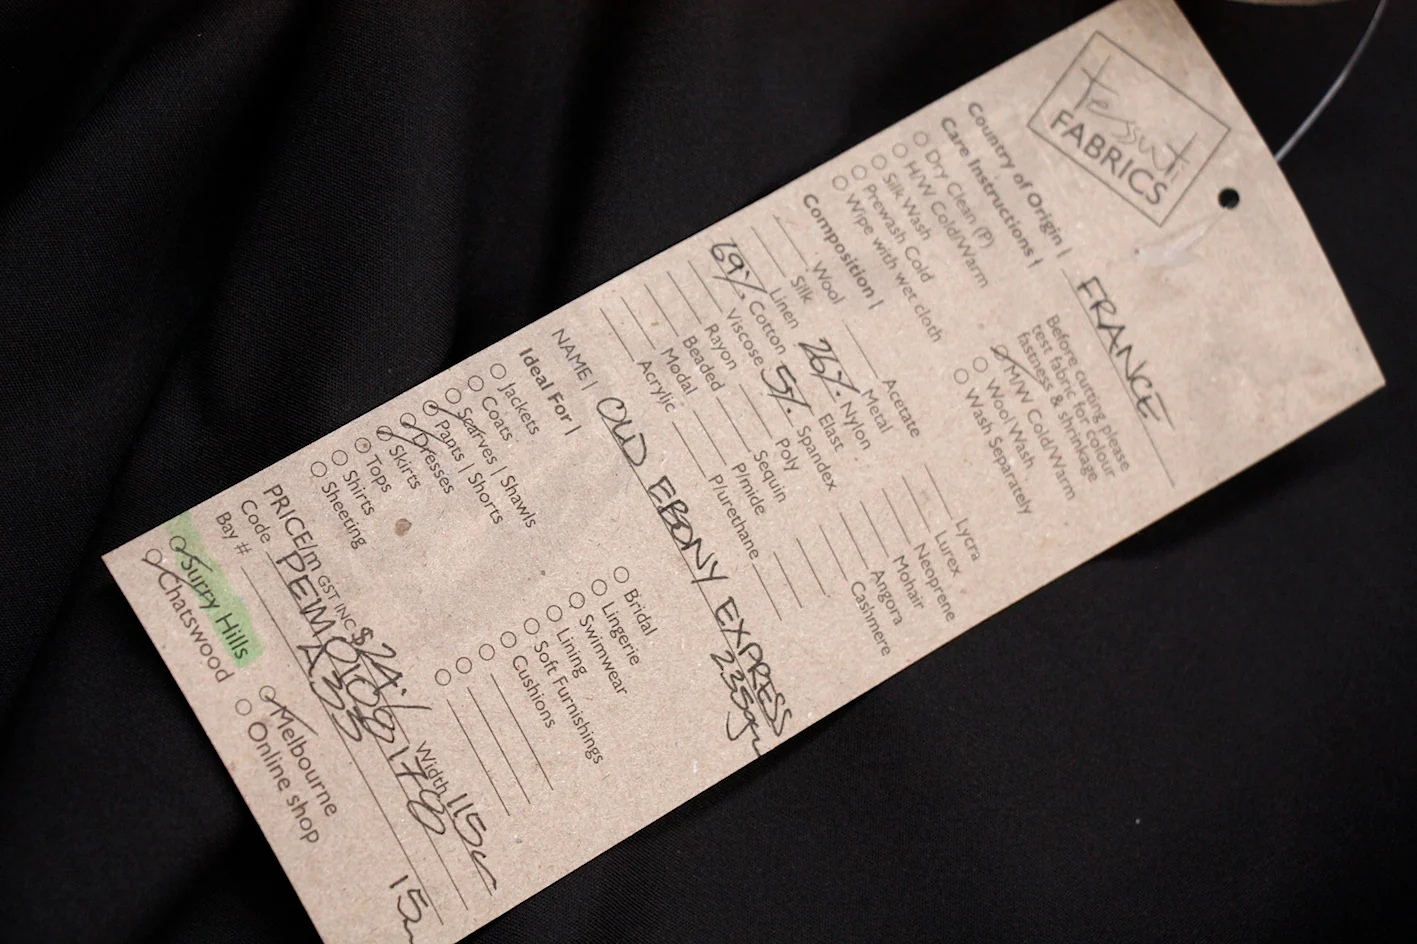 Tessuti
FABRICS
Country of Origin | FRANCE
Care Instructions |
Dry Clean (P)
H/W Cold/Warm
Silk Wash
Prewash Cold
Wipe with wet cloth
Before cutting please
test fabric for colour
fastness & shrinkage
M/W Cold/Warm
Wool Wash
Wash Separately
Composition |
Wool
Silk
Linen
69% Cotton
Viscose
Rayon
Beaded
Modal
Acrylic
Acetate
Metal
26% Nylon
Elast
5% Spandex
Poly
Sequin
P/mide
P/urethane
Lycra
Lurex
Neoprene
Mohair
Angora
Cashmere
NAME | OLD EBONY EXPRESS
235gm
Ideal For |
Jackets
Coats
Scarves | Shawls
Pants | Shorts
Dresses
Skirts
Tops
Shirts
Sheeting
Bridal
Lingerie
Swimwear
Lining
Soft Furnishings
Cushions
PRICE/m GST INC $ 24.1 Width 115c
Code PEWM
Bay # A33
15m
Surry Hills
Chatswood
Melbourne
Online shop